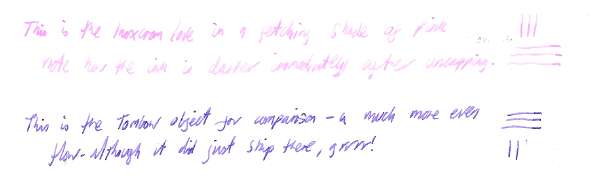 This is the in a fetching shade of pink
note how the ink is darker immediately after uncapping.
This is the Tombow object for comparison - a much more even
flow - although it did just skip there, grrrr!